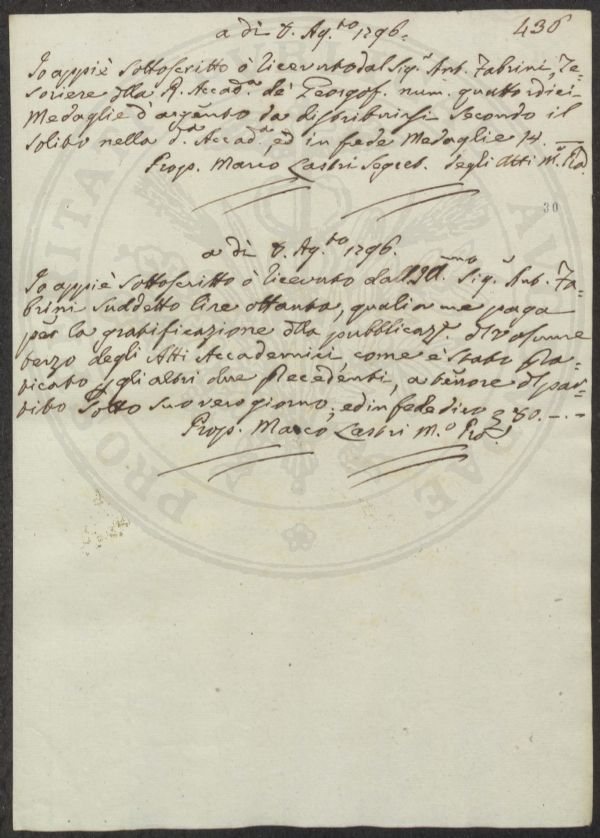 a dì 8. Ag.to 1796.
436
Io appiè sottoscritto ò ricevuto dal Sig.r Ant. Fabrini, Te-
soriere dlla R. Accad.a de' Georgof. num. quattordici
Medaglie d'argento da distribuirsi secondo il
solito nella d.a Accad.a, ed in fede Medaglie 14.
Prop. Marco Lastri Segret. degli Atti m.o Pa.
30
a dì 8. Ag.to 1796.
Io appiè sottoscritto ò ricevuto dall' Sig.r Ant. Fa-
brini suddetto lire ottanta, quali a me paga
per la gratificazione dlla pubblicaz.e dl volume
terzo degli Atti Accademici come è stato pra-
ticato gli altri due precedenti, a tenore dl par-
tito sotto suo vero giorno; ed in fede dico £ 80.-.-
Prop. Marco Lastri m.o
PROSPERITATI PUBLICAE AUGENDAE